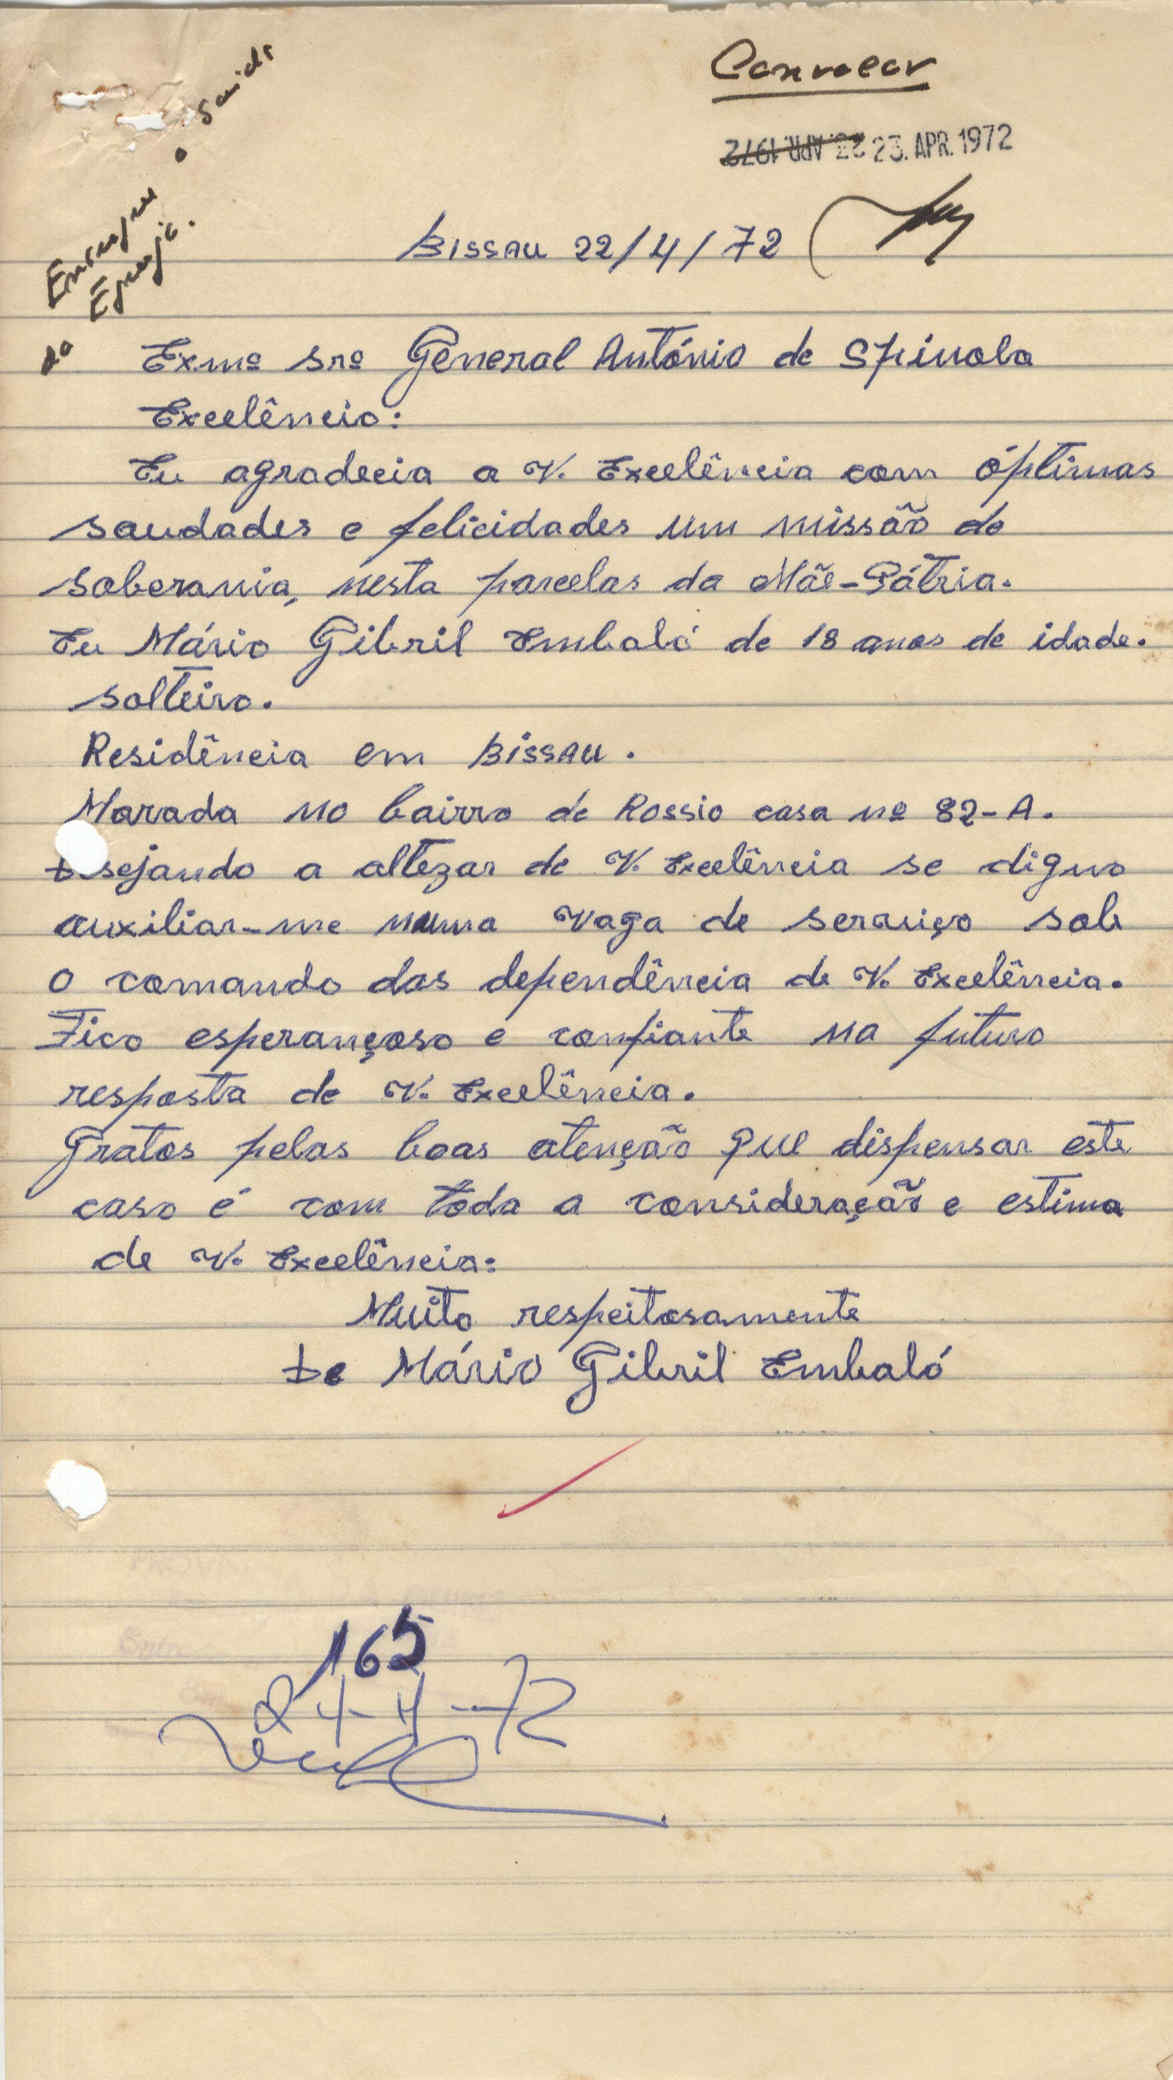 Convocar
22.APR.1972 23.APR.1972
Bissau 22/4/72
Exmº srº General António de Spinola
Excelêncio:
Eu agradecia a V. Excelência com óptimas
saudades e felicidades um missão de
soberania, nesta parcelas da Mãe-Pátria.
Eu Mário Gibril Embaló de 18 anos de idade.
solteiro.
Residência em Bissau.
Morada no bairro de Rossio casa nº 82-A.
Desejando a altezar de V. Excelência se digno
auxiliar-me numa vaga de serviço sob
o comando das dependência de V. Excelência.
Fico esperançoso e confiante na futuro
resposta de V. Excelência.
Gratos pelas boas atenção que dispensar este
caso é com tôda a consideração e estima
de V. Excelência:
Muito respeitosamente
De Mário Gibril Embaló
165
24-4-72